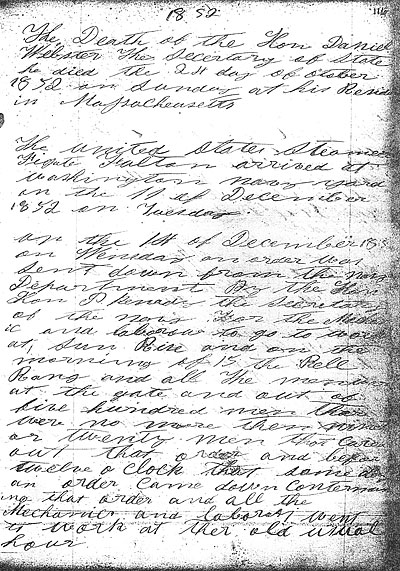 1852
116
The Death of the Hon Daniel
Webster The Secretary of State
he died the 24 day of October
1852 on Sunday at his Resid
in Massachusetts
The united States Steamer
Frigate Fulton arrived at
washington navy yard
on the 11 of December
1852 on Tuesday
on the 14 of December 185
on Wensday an order was
sent down from the nav
Department By the Hon
Hon P Kenedy the Secretary
of the navy For the Mechan
ic and laborow to go to work
at Sun Rise and on the
morning of 15 the Bell
Rang and all the men
at the gate and out of
five hundred men thar
were no more then
or twenty men that Care
out that order and before
twelve o clock that same day
an order came down Conterman
ing that order and all the
Mechanics and laborers went
to work at ther old usual
hour